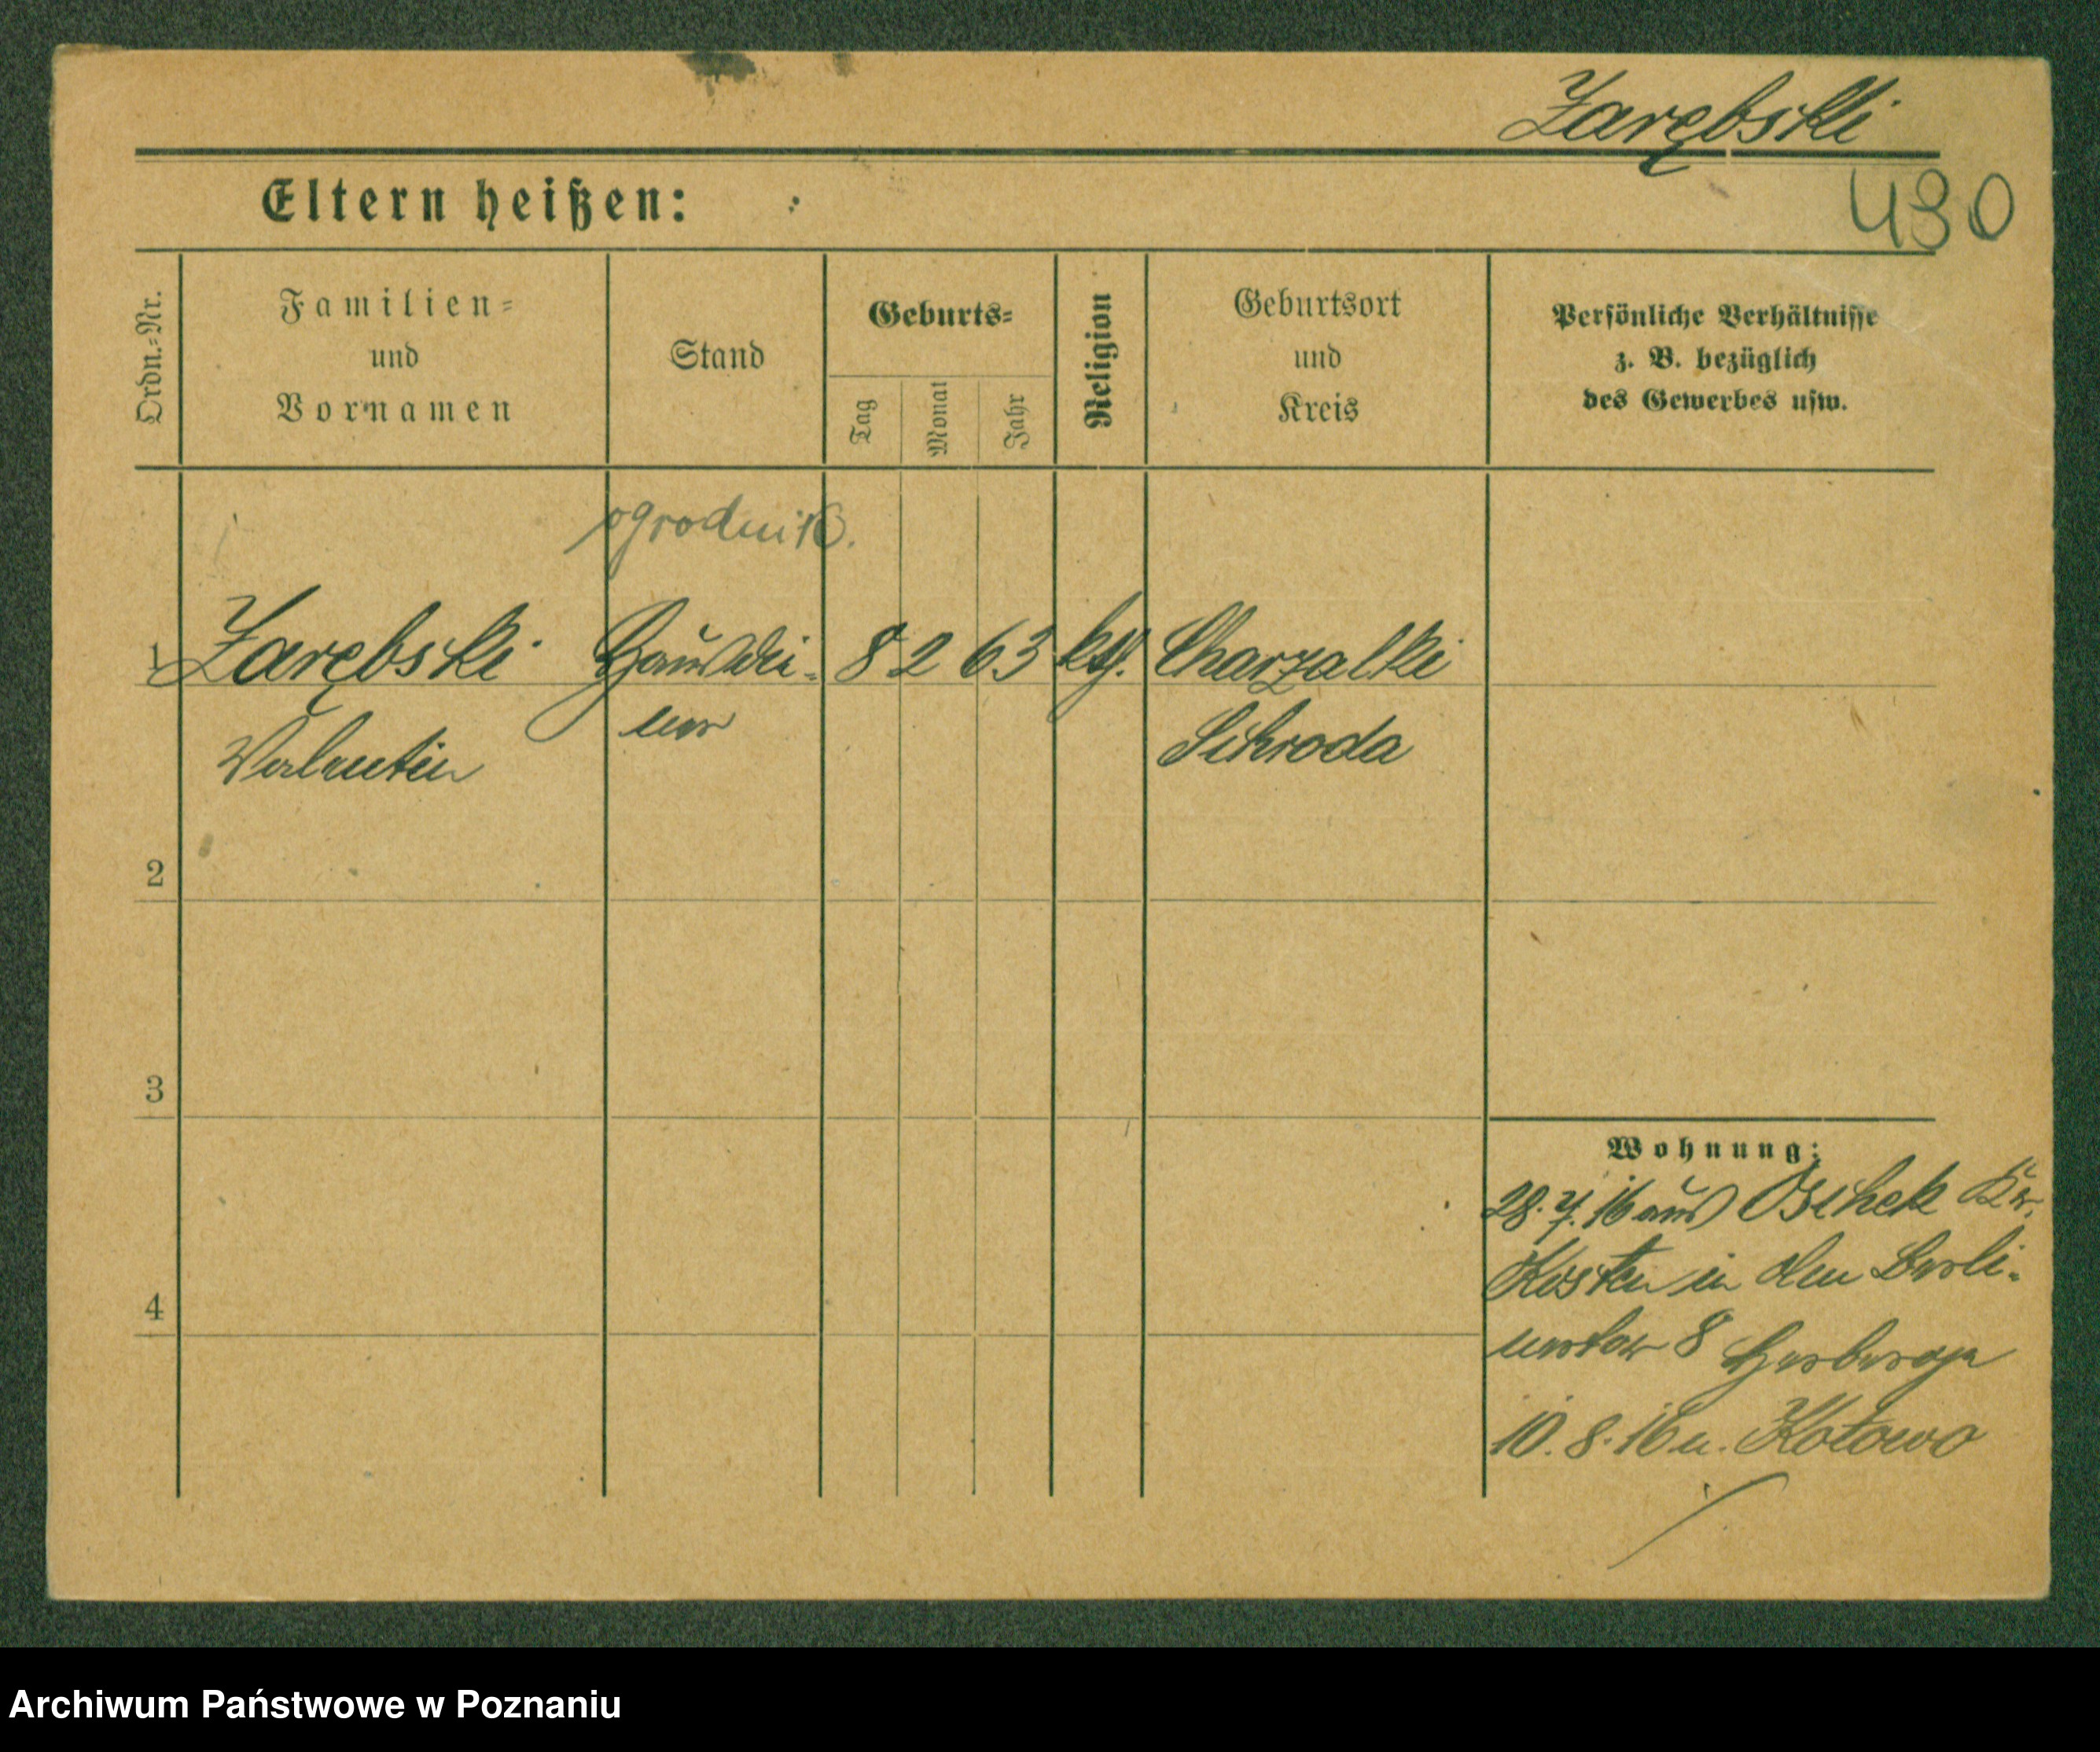 Zarębski
430
Eltern heißen:
Ordn.=Nr.
Familien=
und
Vornamen
Stand
Geburts=
Tag
Monat
Jahr
Religion
Geburtsort
und
Kreis
Persönliche Verhältnisse
z. B. bezüglich
des Gewerbes usw.
ogrodnik.
1 Zarębski 8 2 63 ktḥ. Charzalki
Valentin Schroda
2
3
4
Wohnung:
28. 7. 16 aus Oschek Kr.
Kosten in den Berli-
nertor 8 Herberge
10. 8. 16 n. Kotowo
Archiwum Państwowe w Poznaniu